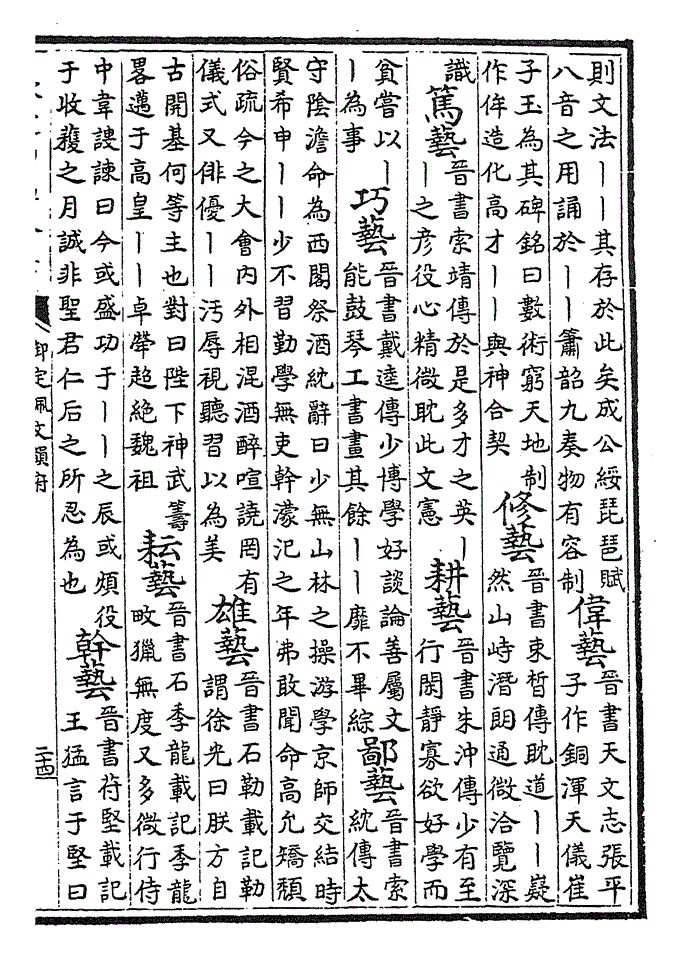 則文法丨丨其存於此矣成公綏琵琶賦
八音之用誦於丨丨簫韶九奏物有容制
偉藝
晉書天文志張平
子作銅渾天儀崔
子玉為其碑銘曰數術窮天地制
作侔造化高才丨丨與神合契
修藝
晉書束皙傳耽道丨丨嶷
然山峙潛朗通微洽覽深
識
篤藝
晉書索靖傳於是多才之英丨
丨之彥役心精微耽此文憲
耕藝
晉書朱沖傳少有至
行閑靜寡欲好學而
貧嘗以丨
丨為事
巧藝
晉書戴逵傳少博學好談論善屬文
能鼓琴工書畫其餘丨丨靡不畢綜
鄙藝
晉書索
紞傳太
守陰澹命為西閣祭酒紞辭曰少無山林之操游學京師交結時
賢希申丨丨少不習勤學無吏幹濛汜之年弗敢聞命高允矯頹
俗疏今之大會內外相混酒醉喧譊罔有
儀式又俳優丨丨汚辱視聽習以為美
雄藝
晉書石勒載記勒
謂徐光曰朕方自
古開基何等主也對曰陛下神武籌
畧邁于高皇丨丨卓犖超絕魏祖
耘藝
晉書石季龍載記季龍
畋獵無度又多微行侍
中韋謏諫曰今或盛功于丨丨之辰或煩役
于收穫之月誠非聖君仁后之所忍為也
幹藝
晉書苻堅載記
王猛言于堅曰
御定佩文韻府
二十四